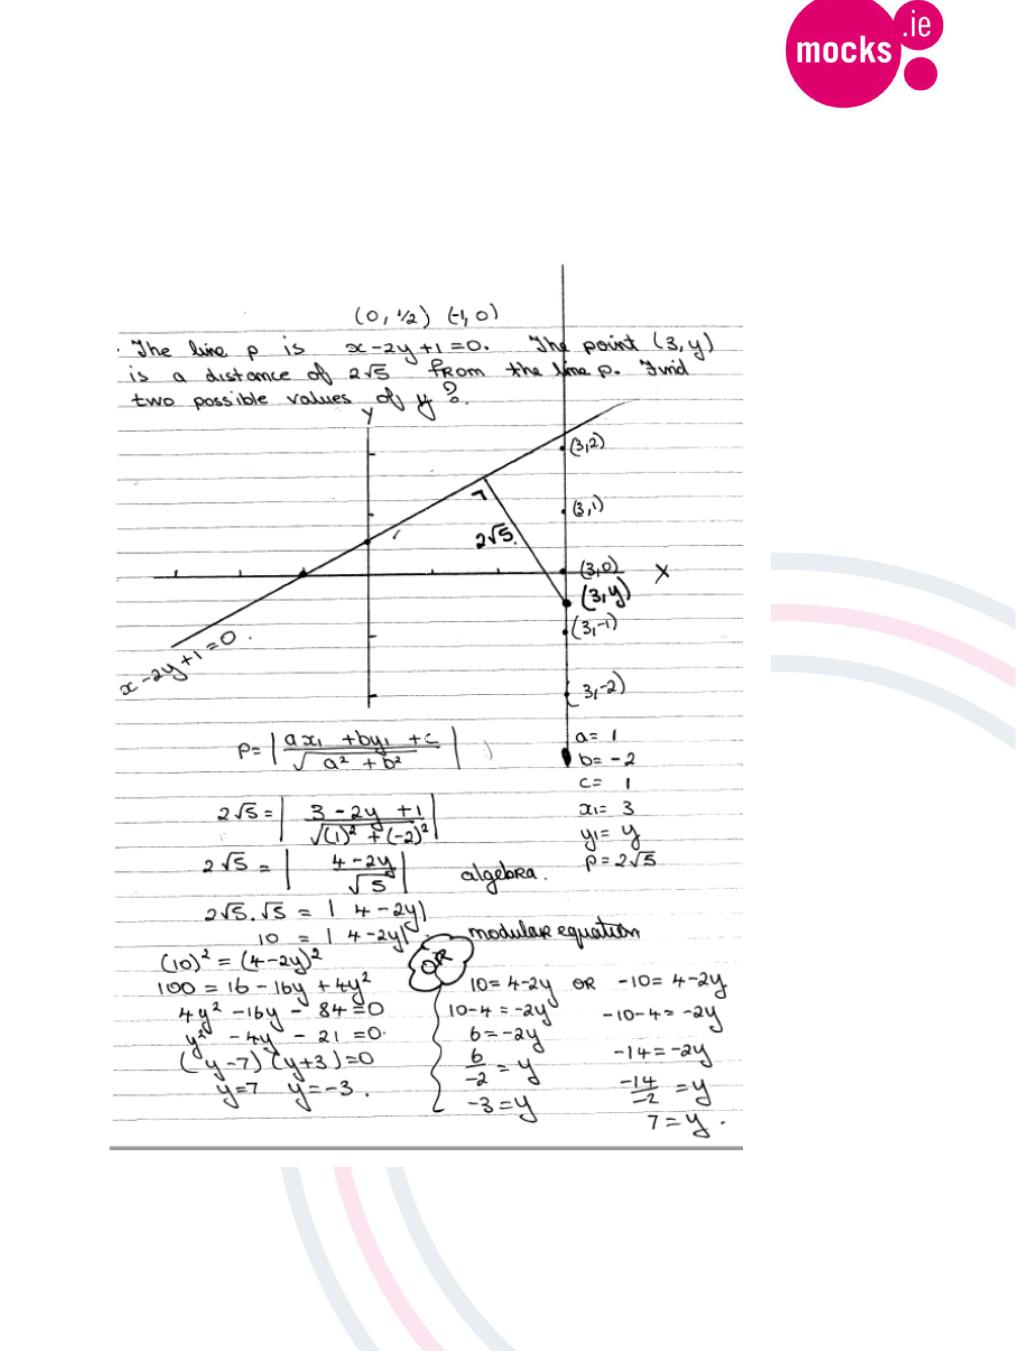 mocks .ie
(0, ½) (-1, 0)
The line p is x-2y+1=0. The point (3,y)
is a distance of 2√5 from the line p. Find
two possible values of y?.
y
(3,2)
(3,1)
2√5.
(3,0) X
(3,y)
(3,-1)
x-2y+1=0.
(3,-2)
P= | ax₁ +by₁ +c / √a² + b² |
a= 1
b= -2
c= 1
x₁= 3
y₁= y
P=2√5
2√5 = | 3-2y+1 / √(1)² + (-2)² |
2√5 = | 4-2y / √5 | algebra.
2√5.√5 = | 4-2y|
10 = | 4-2y| modular equation
(10)² = (4-2y)²
100 = 16 - 16y + 4y²
4y² - 16y - 84 = 0
y² - 4y - 21 = 0.
(y-7) (y+3)=0
y=7 y=-3.
OR
10=4-2y OR -10=4-2y
10-4=-2y -10-4=-2y
6=-2y -14=-2y
6/-2 = y -14/-2 = y
-3=y 7=y.